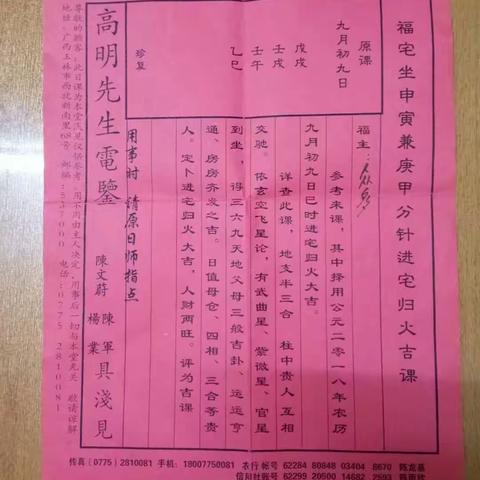 福宅坐申寅兼庚甲分针进宅归火吉课
原课
九月初九日
戊戌
壬戌
壬午
乙巳
珍复
福主：众多
参考来课，其中择用公元二零一八年农历
九月初九日巳时进宅归火大吉。
详查此课，地支半三合 柱中贵人互相
交驰。依玄空飞星论，有武曲星、紫微星、官星
到坐，得三六九天地父母三般吉卦、运运亨
通、房房齐发之吉。日值母仓、四相、三合等贵
人。定卜进宅归火大吉，人财两旺。评为吉课
用事时 请原日师指点
高明先生電鑒
陳文蔚 陳軍
楊業 具淺見
尊敬的顾客：此日课为本堂浅见仅供参考，用不用由主人决定，用事后一切与本堂无关 敬请谅解。
地址：广西玉林市西就新南里68号 邮编：537000 电话：0775 2810081
传真（0775）2810081 手机：18007750081 农行帐号 62284 80848 03404 8670 陈龙基
信用社账号 62299 20500 14682 2593